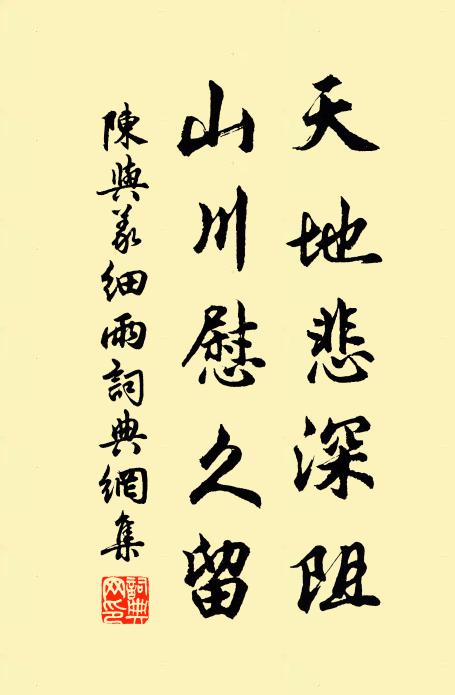 天地悲深阻
山川慰久留
陳與義細雨詞典網集
詞典網印